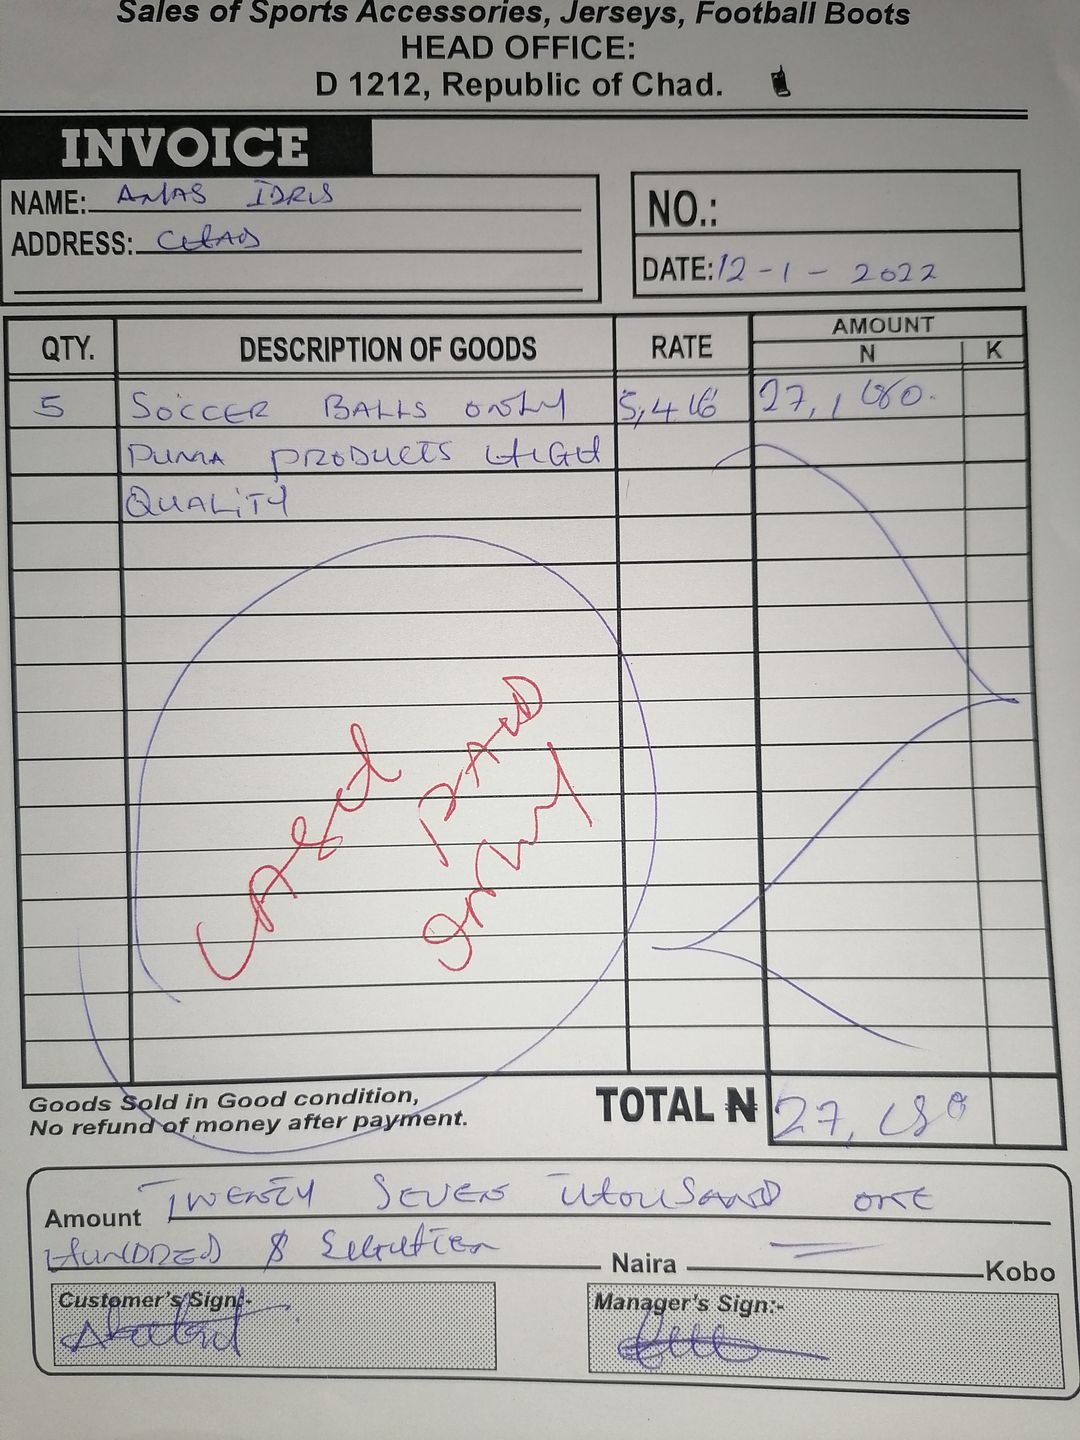 Sales of Sports Accessories, Jerseys, Football Boots
HEAD OFFICE:
D 1212, Republic of Chad.
INVOICE
NAME: ANAS IDRIS
ADDRESS: CHAD
NO.:
DATE: 12-1-2022
QTY. DESCRIPTION OF GOODS RATE AMOUNT
N K
5 SOCCER BALLS ONLY 5,416 27,180.
PUMA PRODUCTS HIGH
QUALITY
PAID
ONLY
Goods Sold in Good condition,
No refund of money after payment.
TOTAL ₦ 27,180
Amount TWENTY SEVEN THOUSAND ONE
HUNDRED $ Naira Kobo
Customer's Sign:-
Manager's Sign:-